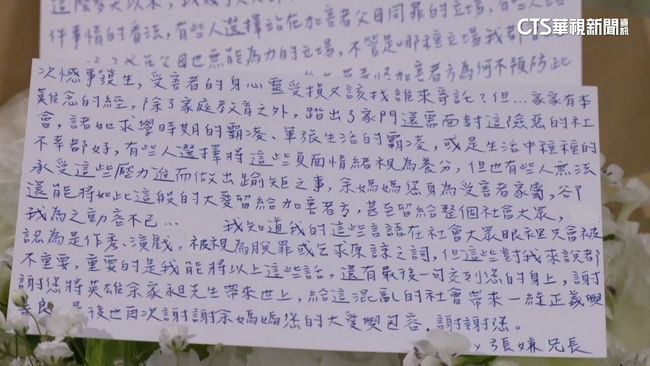 CTS華視新聞資訊
件事情的看法,有些人選擇站在加害者父母同罪的立場,有些人
父母也無能為力的立場,不管是哪種立場我都
加害者方為何不預防此
次憾事發生,受害者的身心靈受損又該找誰來寄託?但…家家有本
難念的經,除了家庭教育之外,踏出了家門還需面對這險惡的社
會,諸如求學時期的霸凌、軍旅生活的霸凌,或是生活中種種的
不幸都好,有些人選擇將這些負面情緒視為養分,但也有些人無法
承受這些壓力進而做出踰矩之事,余媽媽您身為受害者家屬,卻
還能將如此這般的大愛留給加害者方,甚至留給整個社會大眾,
我為之動容不已… 我知道我的這些言語在社會大眾眼裡只會被
認為是作秀、演戲,被視為脫罪或乞求原諒之詞,但這些對我來說都
不重要,重要的是我能將以上這些話,還有最後一句交到您的身上,謝
謝您將英雄余家昶先生帶來世上,給這混亂的社會帶來一絲正義與
善良,最後也再次謝謝余媽媽您的大愛與包容,謝謝您。
張嫌兄長